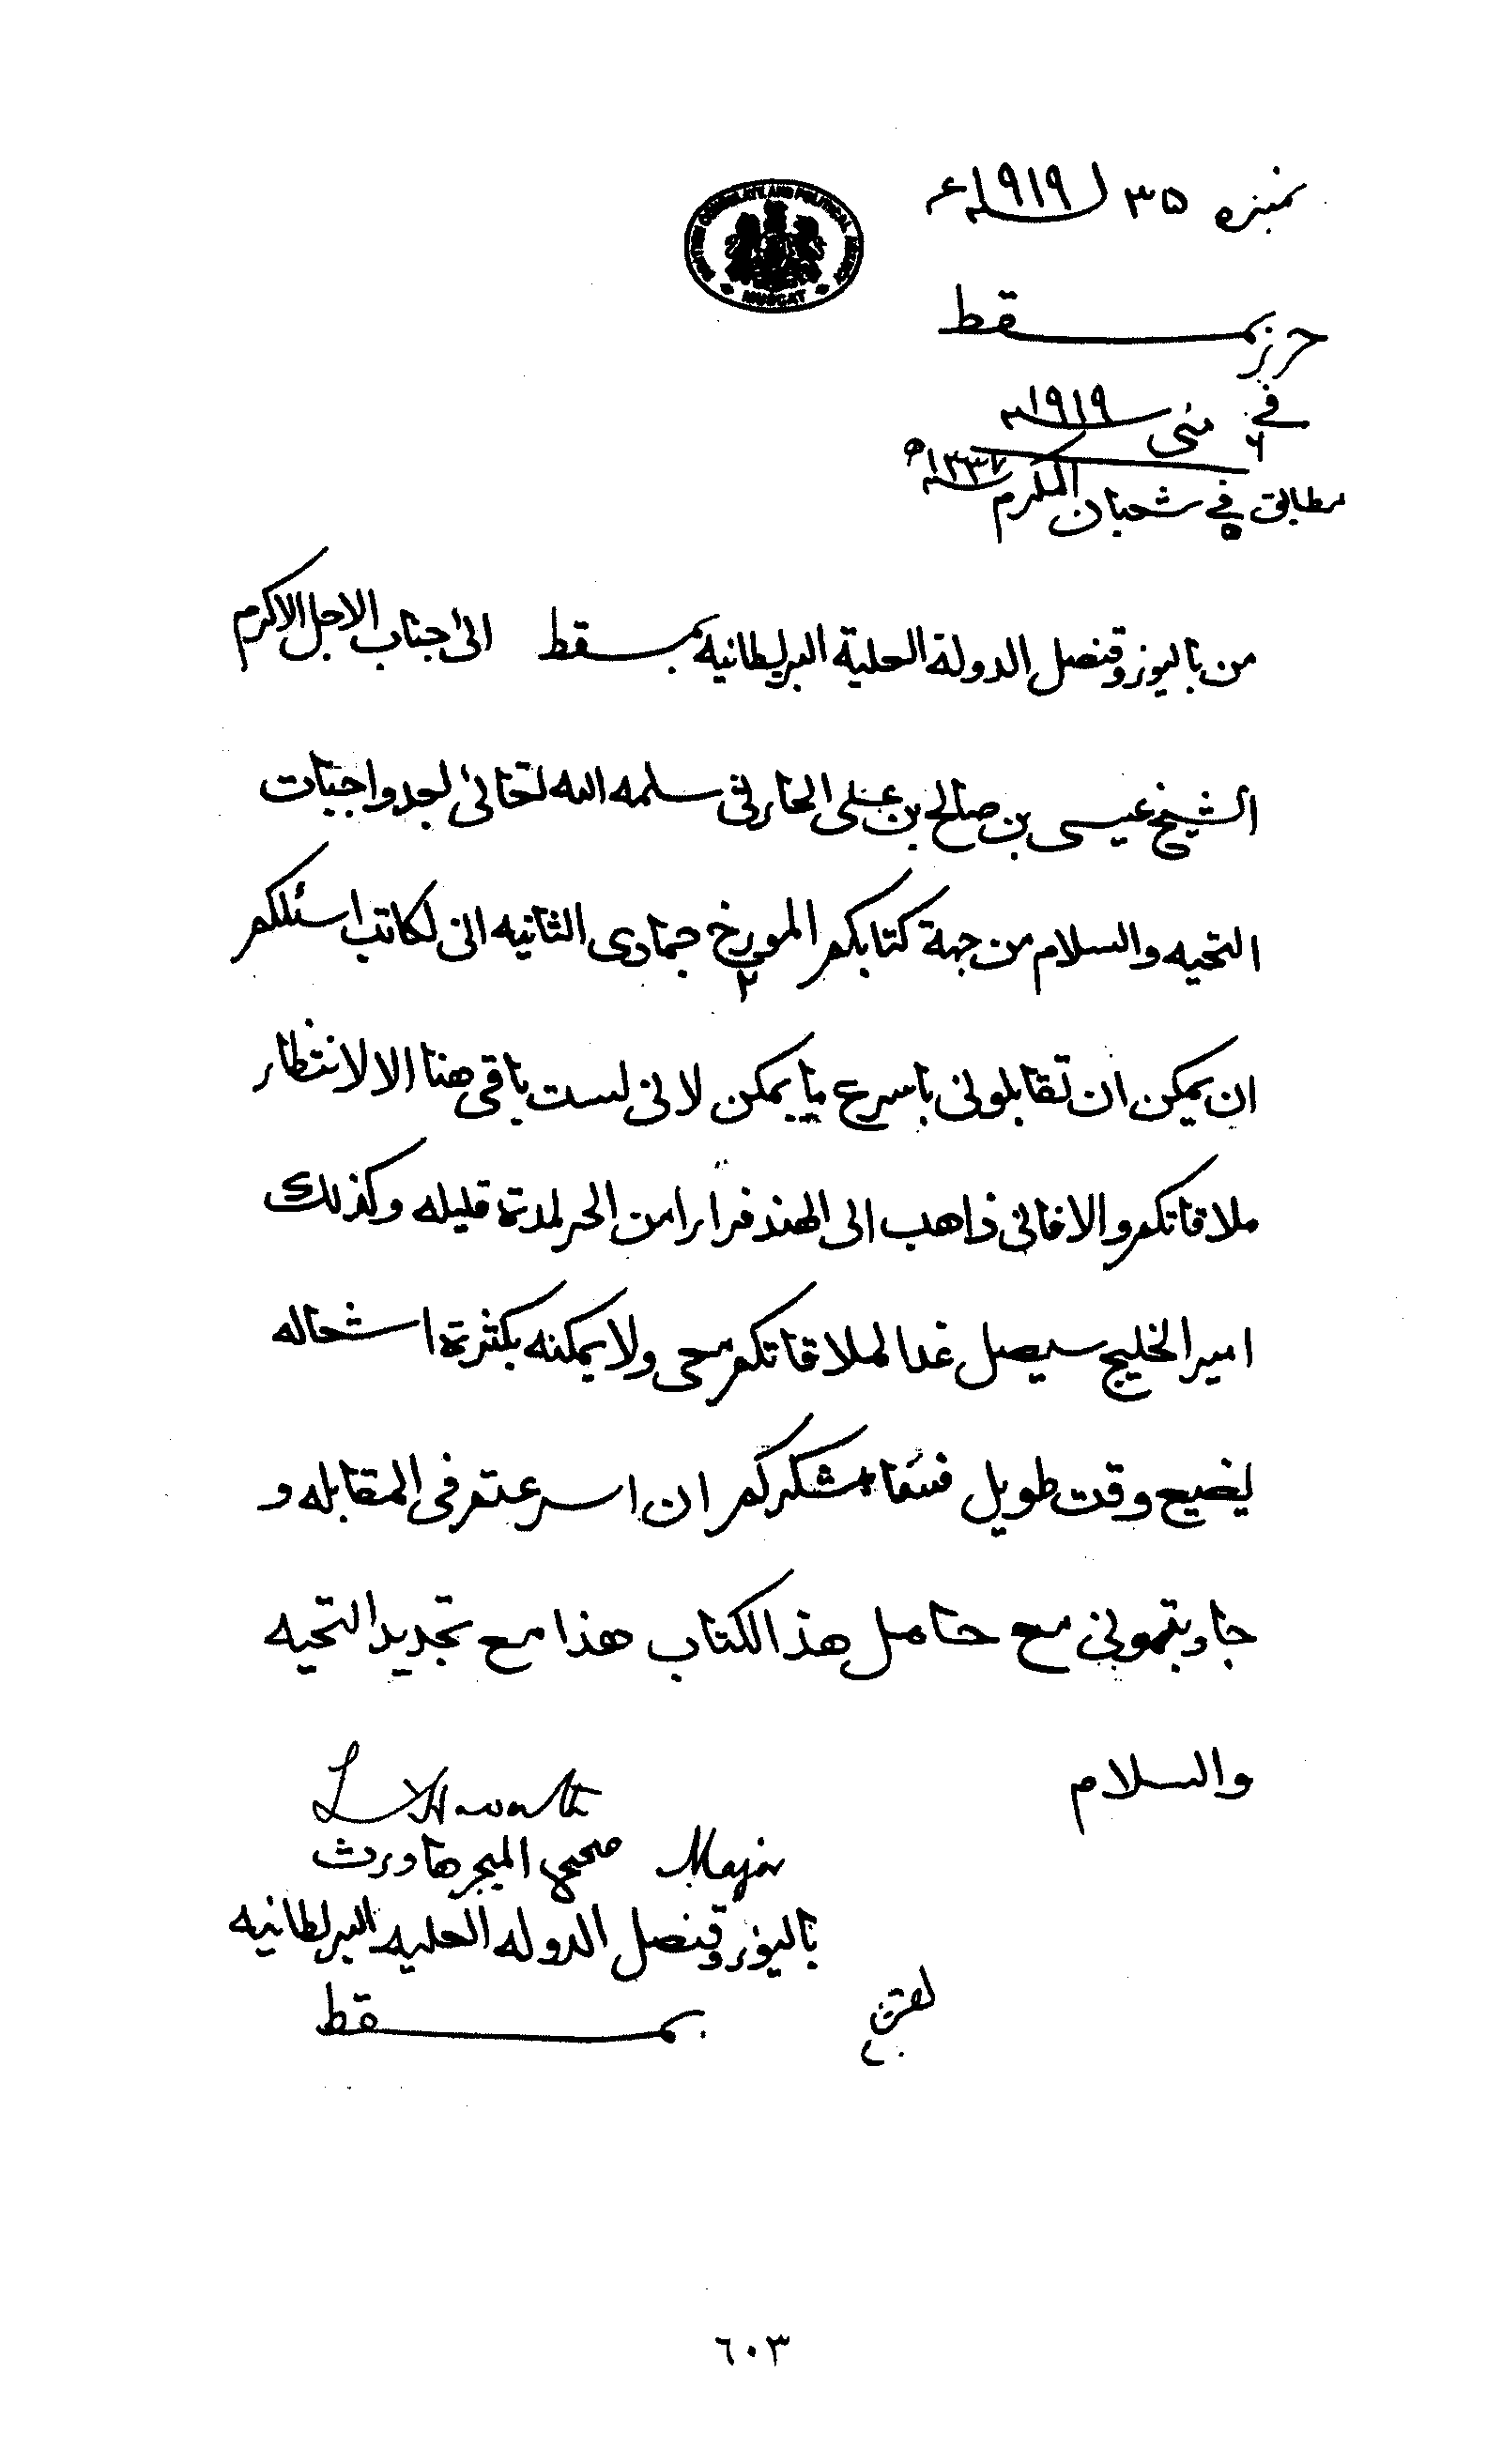 نمبره ٣٥ لسنه ١٩١٩ء
BRITISH CONSULATE AND POLITICAL AGENCY
MUSCAT
حرر بمسقط
في ٦ مئى سنه ١٩١٩
مطابق في ٥ شعبان المكرم سنه ١٣٣٧ه
من باليوز وقنصل الدولة العلية البريطانيه بمسقط الى اجناب الاجل الاكرم
الشيخ عيسى بن صالح بن على الحارثي سلمه الله تعالى لعبد واجبات
التحيه والسلام من جهة كتابكم المورخ ٢ جمادى الثانيه انى لكاتب اسئلكم
ان يمكن ان تقابلونى باسرع ما يمكن لانى لست باقى هنا الا لانتظار
ملاقاتكم والا فانى ذاهب الى الهند فرارا من الحر لمدة قليله وكذلك
امير الخليج سيصل غدا لملاقاتكم معى ولا يمكنه بكثرة اشغاله
يضيع وقت طويل فشكركم ان اسرعتم فى المقابله و
جاوبتمونى مع حامل هذ الكتاب هذا مع تجديد التحيه
والسلام
L Haworth
Major صحيح الميجر هاورث
باليوز وقنصل الدوله العليه البرلطانيه
بمسقط
٦٠٣